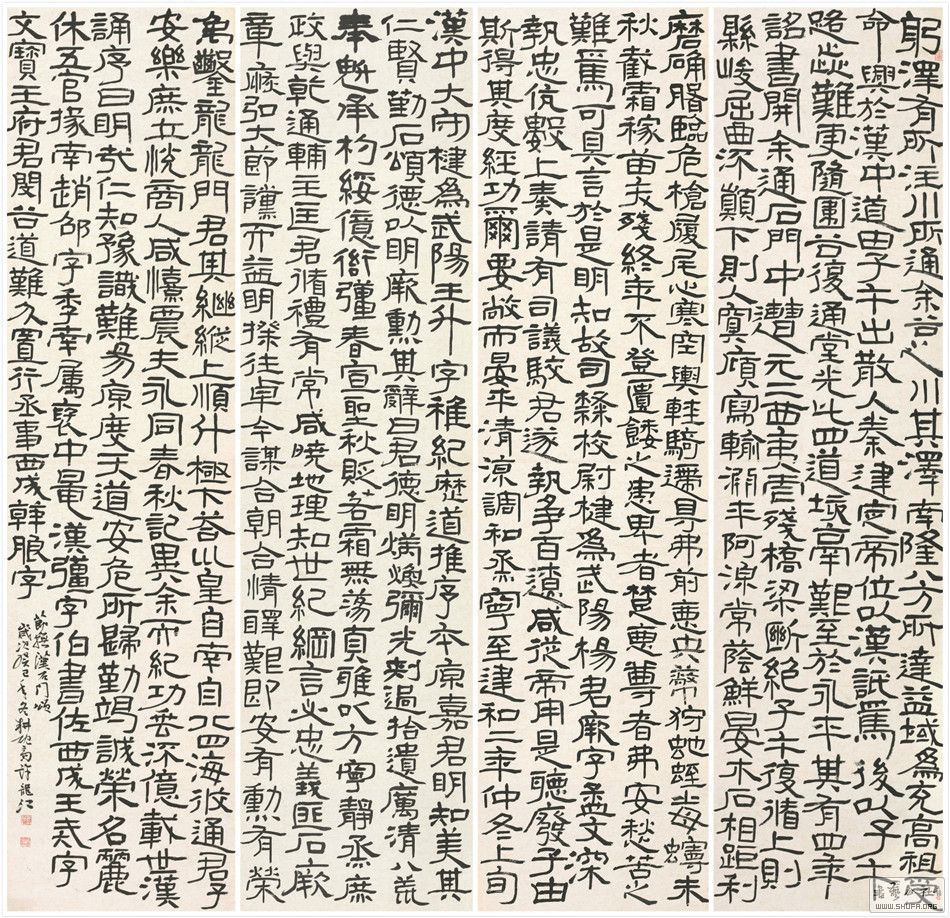 躬澤有所注川所通余谷之川其澤南隆八方所達益域為充高祖受
命興於漢中道由子午出散入秦建定帝位以漢詆焉後以子午
路歰難更隨圍谷復通堂光此四道垓鬲艱至於永平其有四年
詔書開余通石門中遭元二西夷虐殘橋梁斷絕子午復循上則
縣峻屈曲流顛下則入冥廎寫輸淵平阿湶常蔭鮮晏木石相距利
磨确臨危槍履尾心寒空輿輕騎遰㝵弗前惡虫狩虵蛭毒蟃未
秋截霜稼苗夭殘終年不登匱餧之患卑者楚惡尊者弗安愁苦之
難焉可具言於是明知故司隸校尉楗為武陽楊君厥字孟文深
執忠伉數上奏請有司議駮君遂執爭百遼咸從帝用是聽廢子由
斯得其度經功爾要敞而晏平清涼調和烝寧至建和二年仲冬上旬
漢中大守楗為武陽王升字稚紀歷道推序本原嘉君明知美其
仁賢勒石頌德以明厥勳其辭曰君德明煥彌光刺過拾遺厲清八荒
奉魁承杓綏億衙彊春宣聖秋貶若霜無蕩貞雅以方寧靜烝庶
政與乾通輔主匡君循禮有常咸曉地理知世紀綱言必忠義匪石厥
章恢弘大節讜而益明揆往卓今謀合朝合情醳艱即安有勳有榮
禹鑿龍龍門君其繼縱上順斗極下答坤皇自南自北四海攸通君子
安樂庶士悅商人咸憘農夫永同春秋記異今而紀功垂流億載世漢
誦序曰明哉仁知豫識難易原度天道安危所歸勤竭誠榮名麗
休五官掾南趙邵字季南屬褒中鼂漢彊字伯書佐西成王戒字
文寶王府君閔谷道難分置行丞事西成韓朖字
節撫漢石門頌
歲次癸巳年冬許龍江
WWW.SHUFA.ORG